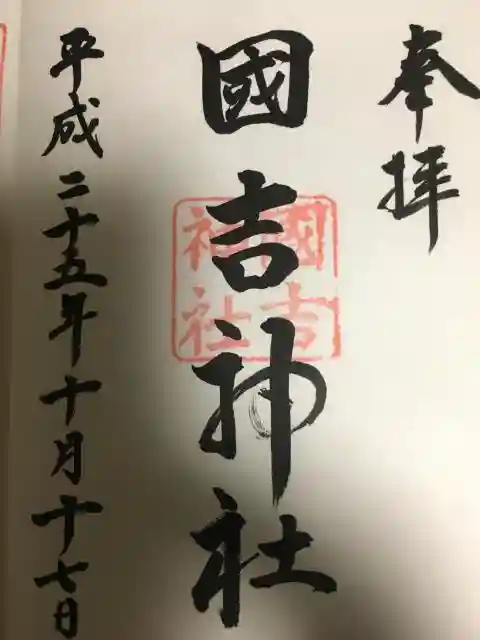 奉拝
國吉神社
國吉
神社
平成二十五年十月十七日